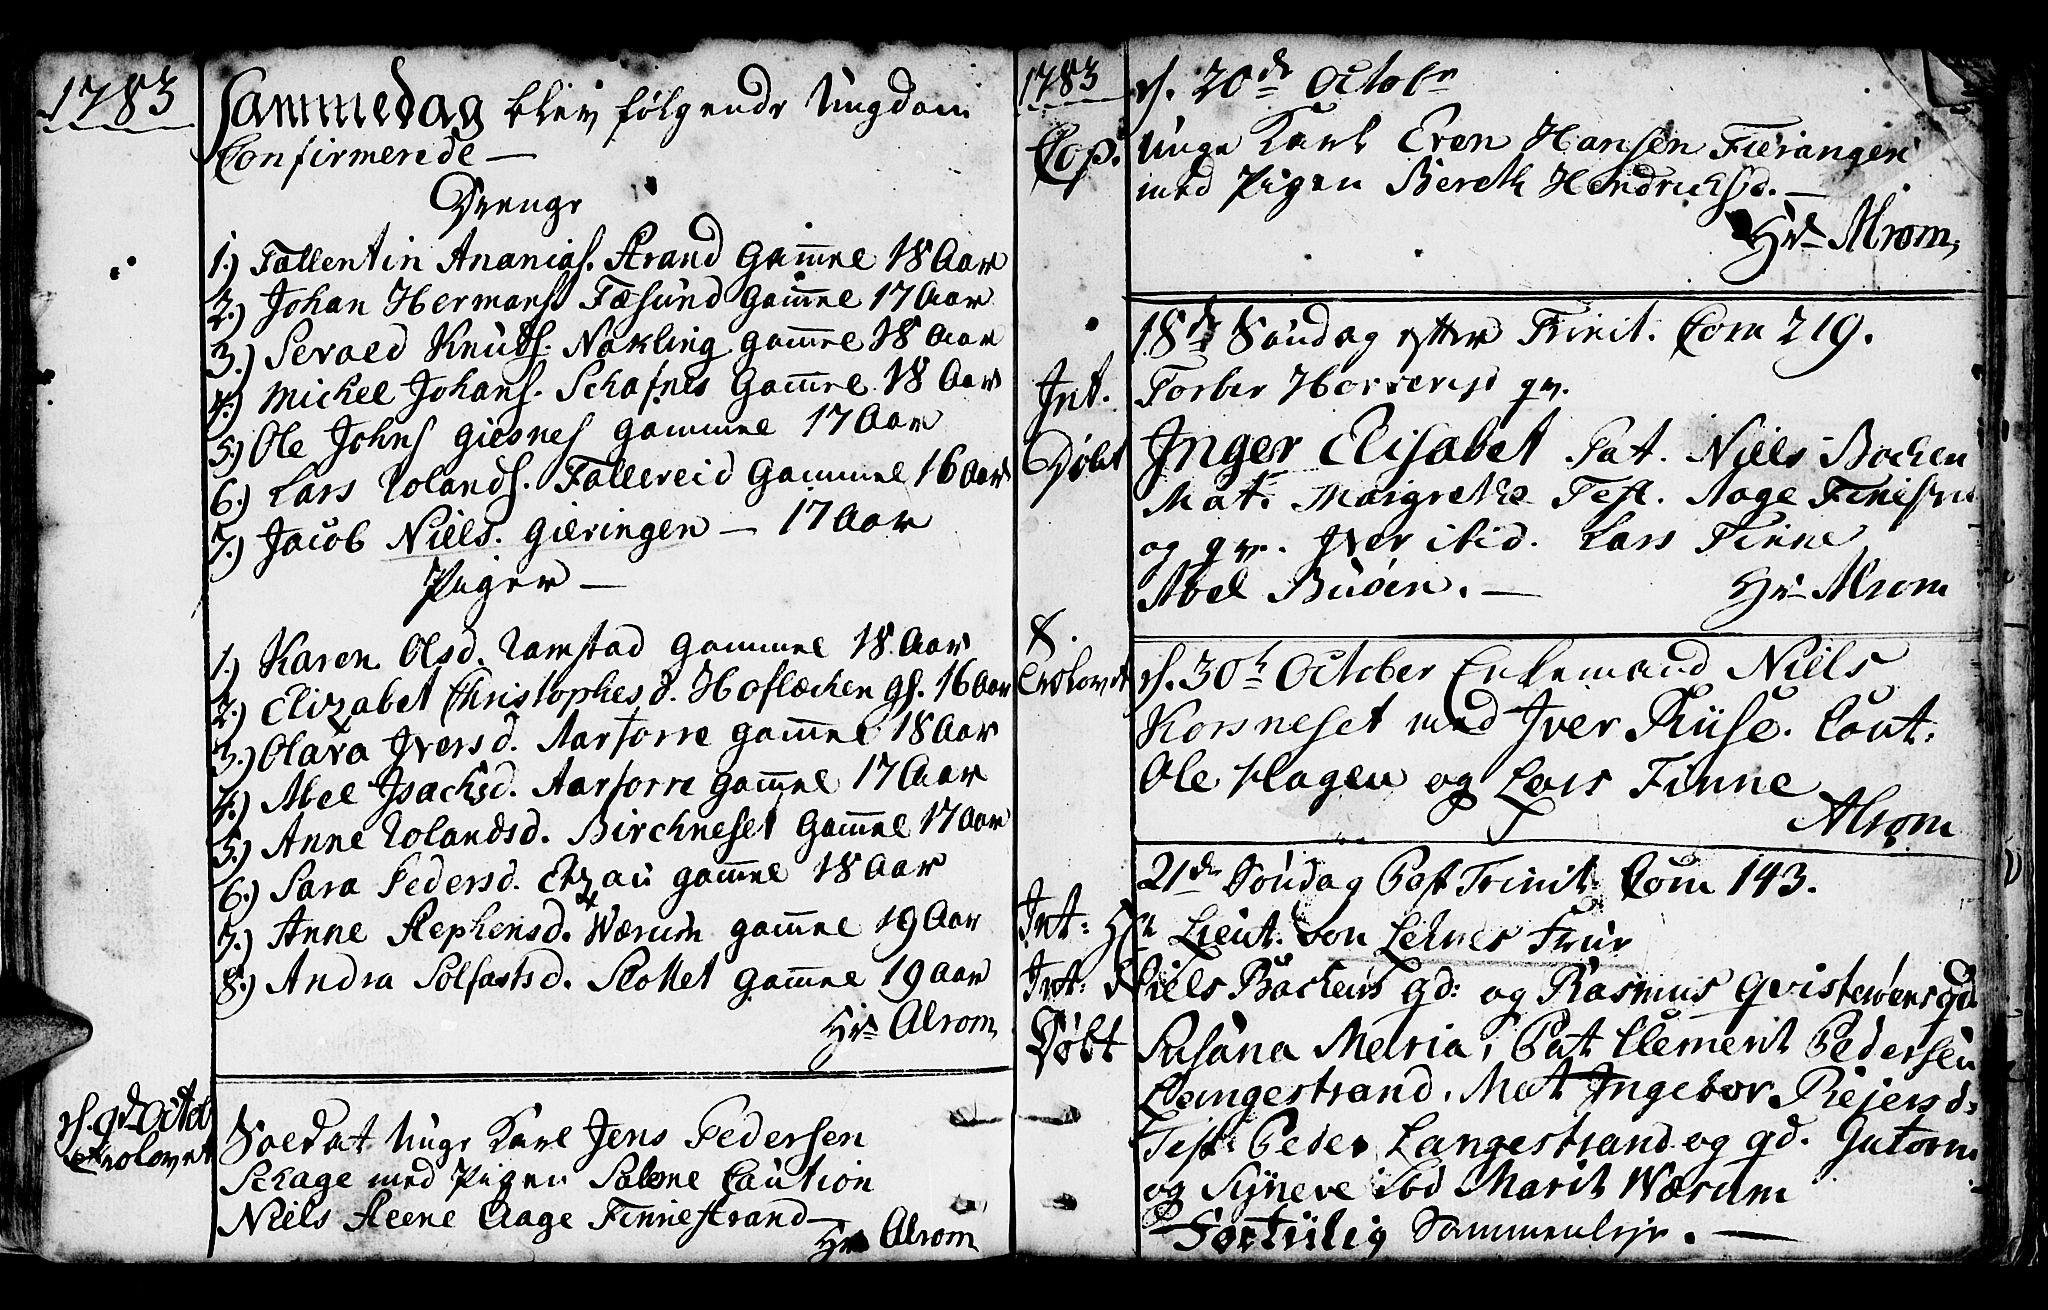 1783
Sammedag blev følgende Ungdom
Confirmerede —
Drenge
1.) Fallentin Ananias. Strand Gam̄el 18 Aar
2.) Johan Hermans. Fæsund Gam̄el 17 Aar
3.) Sevaed Knuds. Nøkling gam̄el 18 Aar
4.) Michel Johans. Schafnes Gam̄el 18 Aar
5.) Ole Johns Giesnes gammel 17 Aar
6.) Lars Rolands. Fallereid Gammel 16 Aar
7.) Jacob Niels. Gieringen — 17 Aar
Piger —
1.) Karen Olsd. Ramstad gammel 18 Aar
2.) Elizabet Christophesd. Hoflochen gl. 16 Aar
3.) Olava Iversd. Aarforre gam̄el 18 Aar
4.) Abel Isachsd. Aarforre gam̄el 17 Aar
5.) Anne Rolandsd. Birchneset Gam̄el 17 Aar
6.) Sara Pedersd. gam̄el 18 Aar
7.) Anne Stephensd. Wærum gam̄el 19 Aar
8.) Andra Solfastsd. Slottet gam̄el 19 Aar
Hr. Alrom
d. 9de Octob
Trolovet
Soldat Unge Karl Jens Pedersen
Schage med Pigen Salome Caution
Niels Steene Aage Finnestrand —
Hr. Alrom
1783
d. 20de Octobr
Cop. Unge Karl Even Hansen Fieranger
med Pigen Bereth Hendrichsd. —
Hr. Alrom,
18de Søndag efter Trinit. Com 219.
Int. Torber Horreresd qv.
Døbt Inger Elisabet Pat. Niels Bochen
Mat. Margrethe Test. Aage Finis
og qv. Iver ibid. Lars Finne
Abel Buöen. — Hr. Alrom
Trolovet d. 30te October Enkemand Niels
Korsneset med Iver Ruse. Caut.
Ole Hagen og Lars Finne
Alrom
21de Søndag Post Trinit. Com 143.
Int: Hr. Lieut. von Frue
Int: Niels Bachens qd: og Rasmus Qvistevens qd
Døbt Susana Maria, Pat Clement Pedersen
Langestrand. Mat Ingebor Reiersd.
Test: Peder Langestrand og qd. Gutorm
og Syneve ibd Marit Wærum
Fortiilig Sammenleye. —